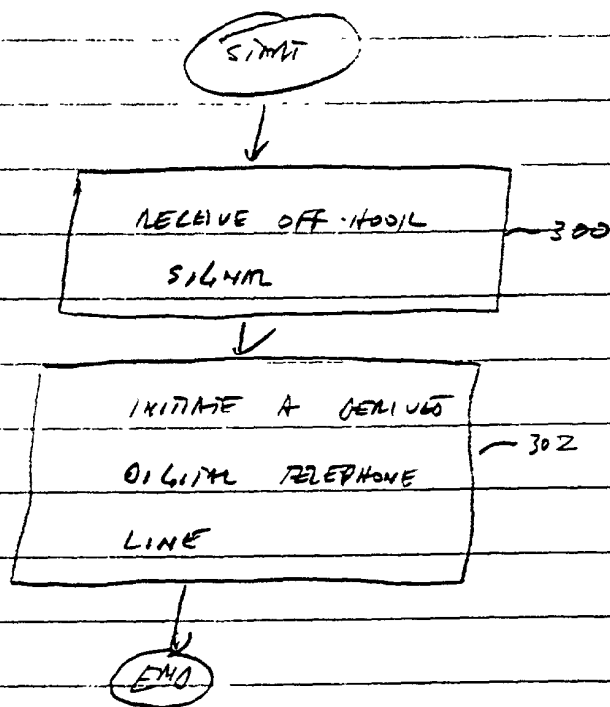 START
RECEIVE OFF-HOOK
SIGNAL
300
INITIATE A DERIVED
DIGITAL TELEPHONE
LINE
302
END